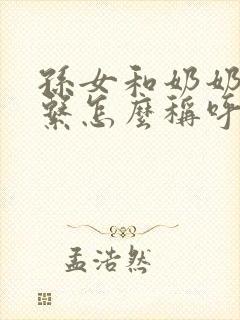 孫女和奶奶
繫怎麼稱呼
孟浩然